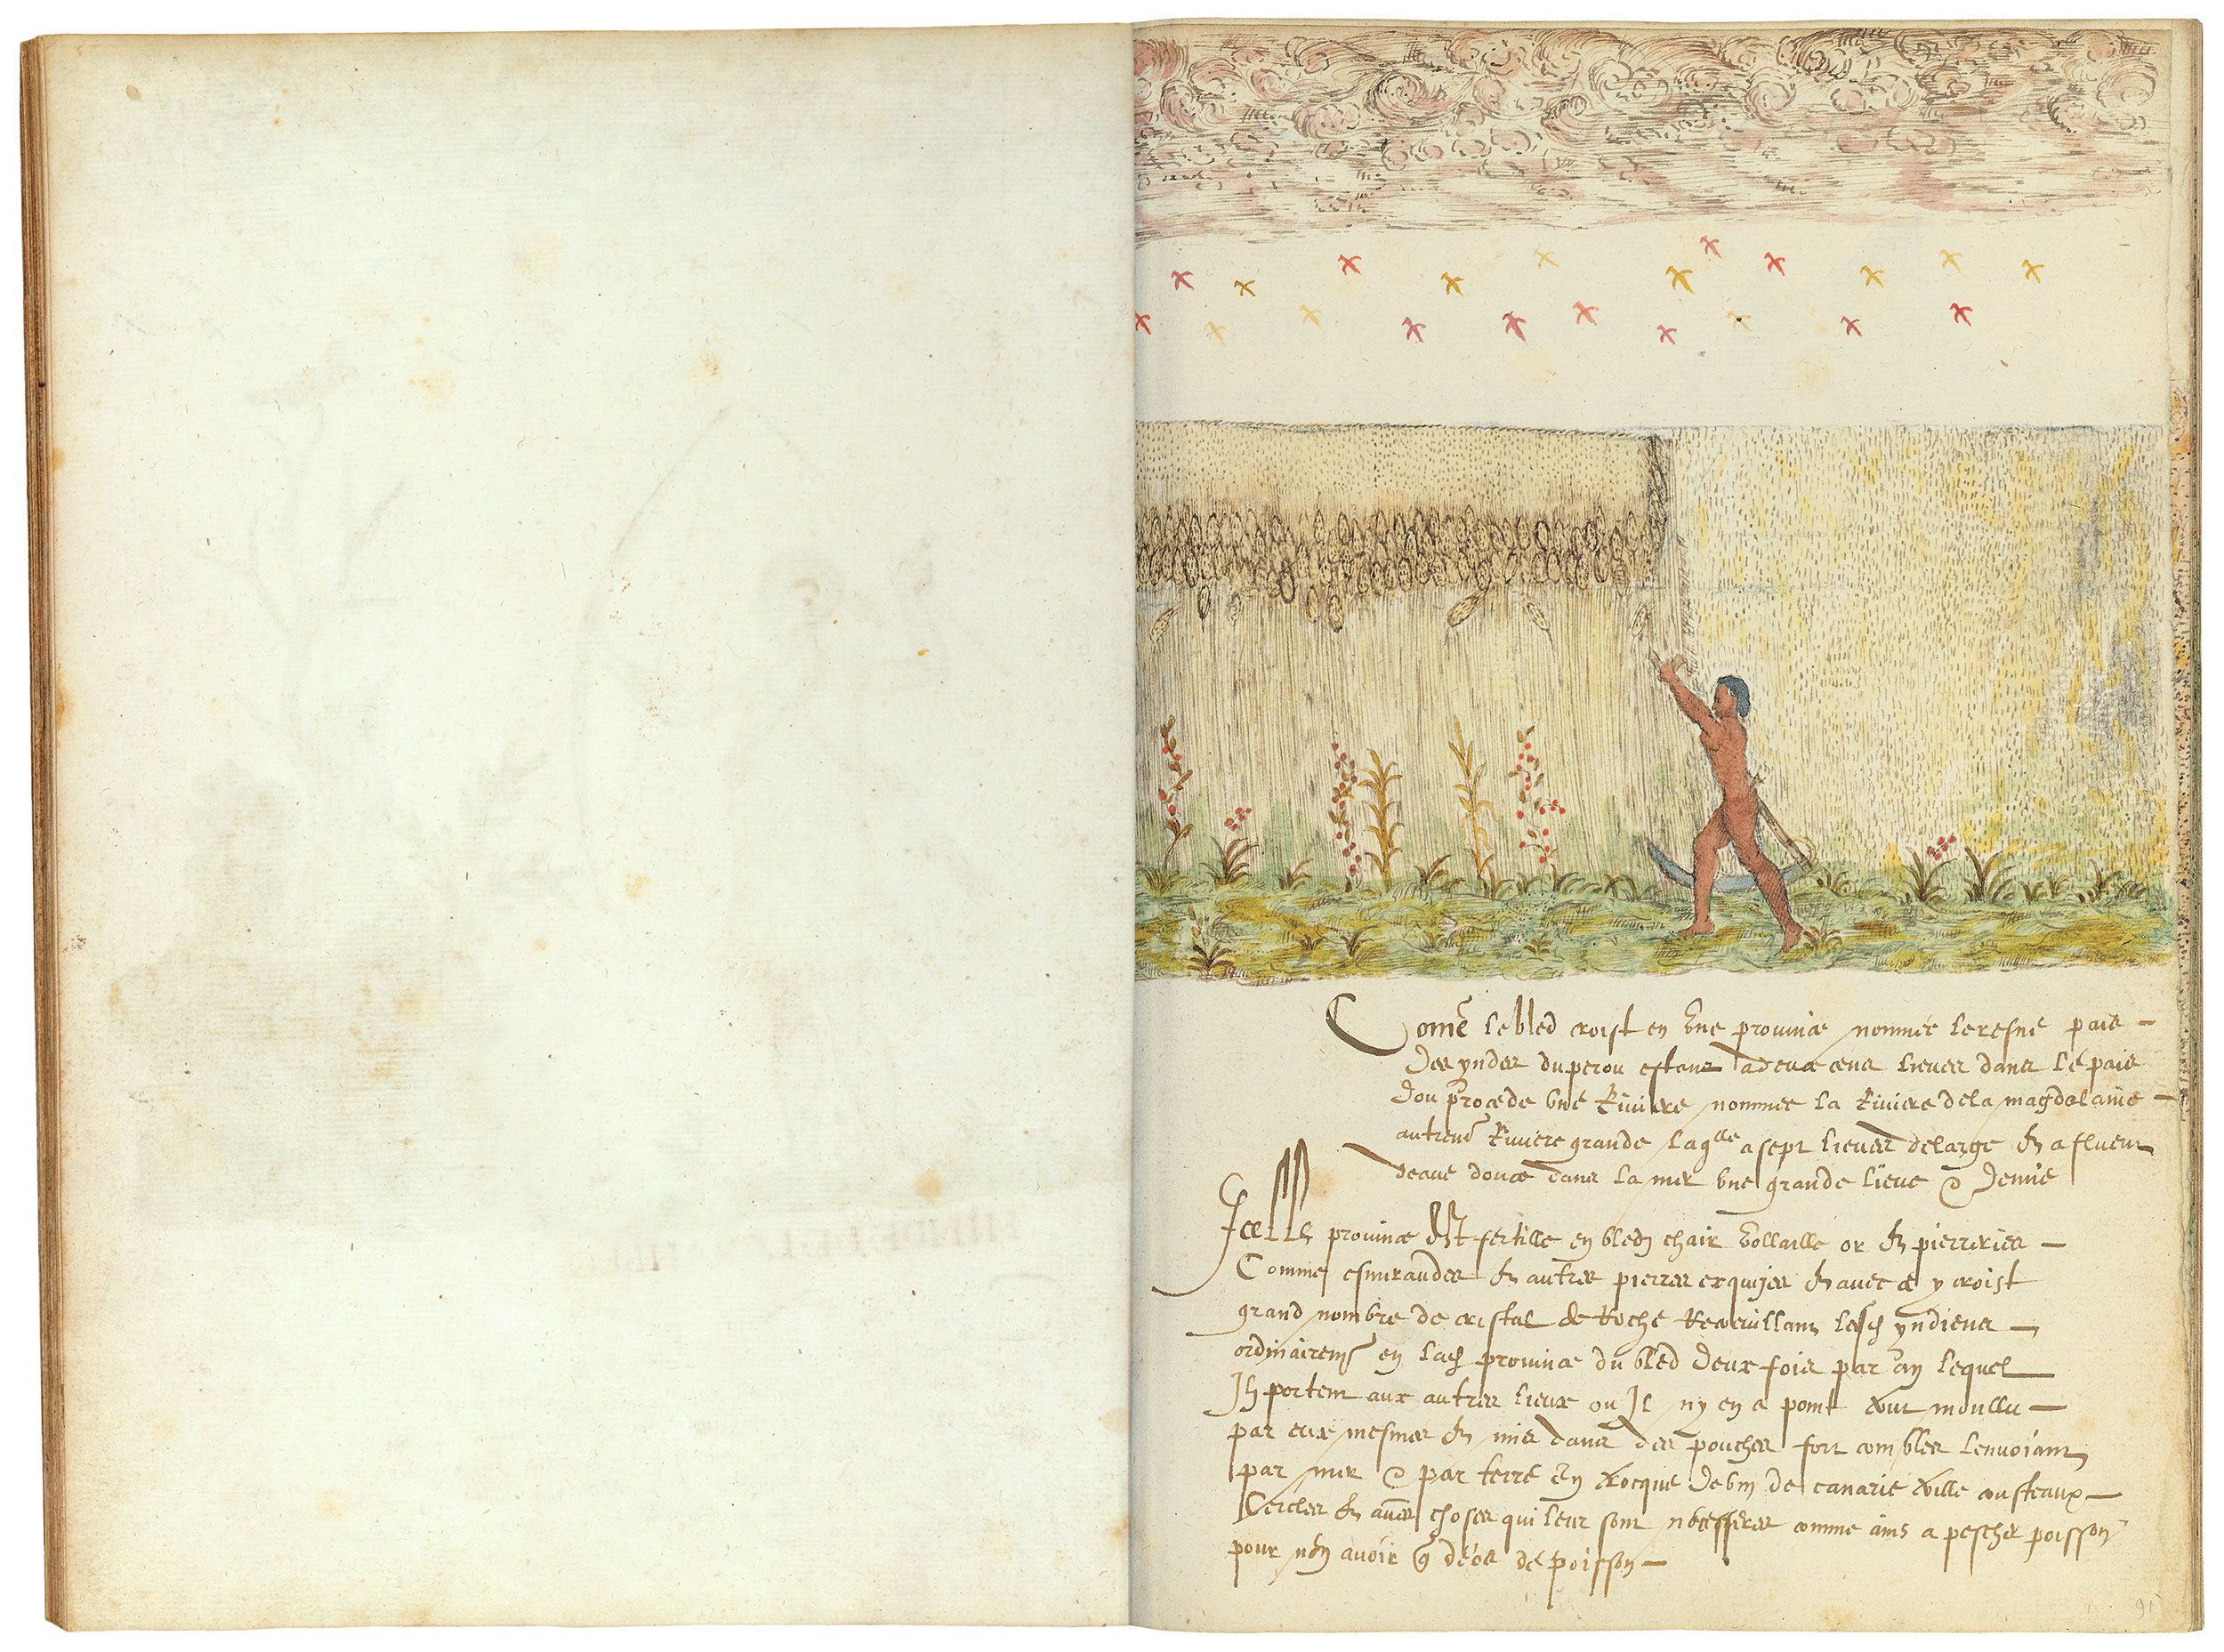 Comē le bled croist en vne prouince nommee leresne pais
Des yndes du perou estant a deux cens lieues dans le pais
dou procede vne Riuiere nommee la Riuiere de la magdelaine
autremt Riuiere grande laqlle a sept lieues de large & a fluent
deaue douce dans la mer vne grande lieue & demie
Icelle prouince est fertille en bledz chair vollaille or & pierreries
Comme esmeraudes & autres pierres exquizes & auec ce y croist
grand nombre de cristal de Roche Receuillant lesd yndiens
ordinairemt en lad prouince du bled deux fois par an lequel
Ilz portent aux autres lieux ou Il ny en a point tout moullu
par eux mesmes & mis dans des pouches fort combles lenuoiant
par mer & par terre En trocque de vin de canarie toille cousteaux
Cercles & aūes choses qui leur sont necesseres comme ains a pescher poisson
pour nen auoir q de os de poisson
91